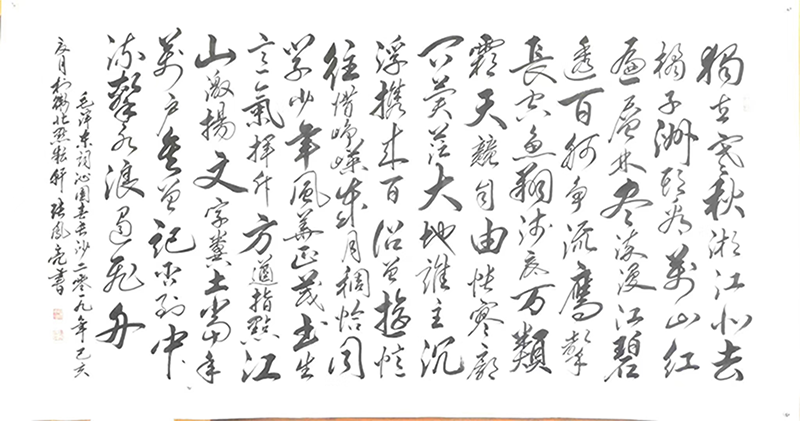 獨立寒秋湘江北去
橘子洲頭看萬山紅
遍層林尽染漫江碧
透百舸争流鷹擊
長空魚翔浅底万類
霜天競自由悵寥廓
问蒼茫大地誰主沉
浮携来百侣曾遊憶
往惜峥嵘歲月稠恰同
学少年風華正茂書生
意氣揮斥方遒指點江
山激揚文字糞土當年
萬户矦曾記否到中
流擊水浪遏飛舟
毛泽東詞沁園春長沙二零一九年己亥
月於北軒張鳳亮書